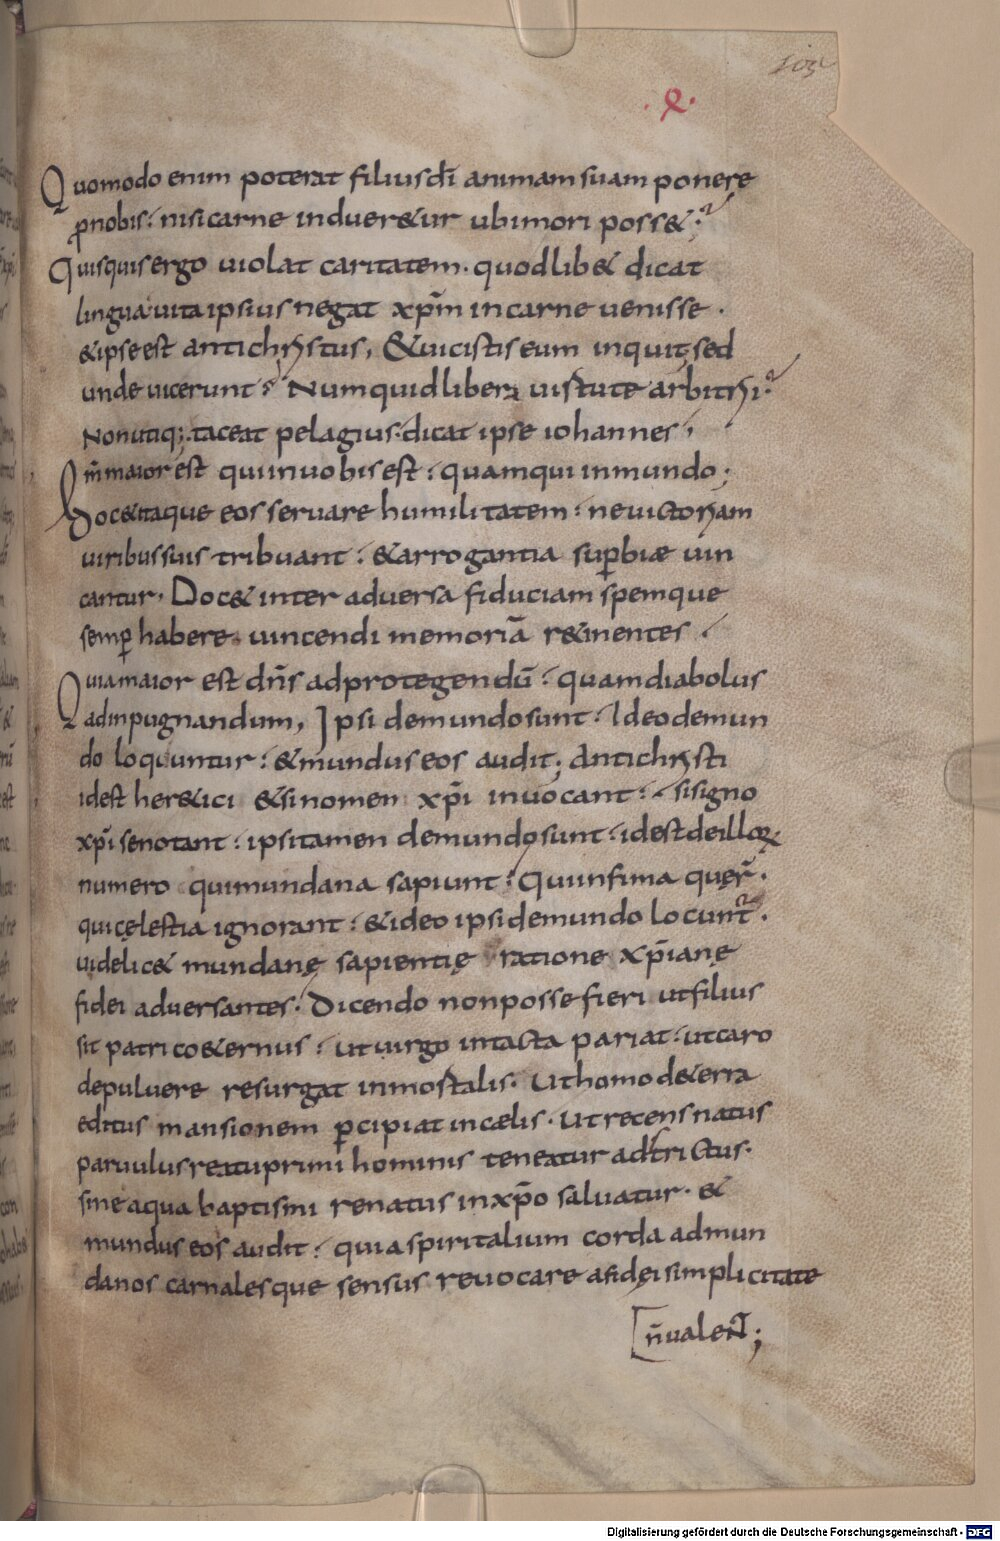 103
·e·
Quomodo enim poterat filius dī animam suam ponere
ꝓnobis: nisi carne induer&ur ubi mori poss&:
Quisquis ergo uiolat caritatem. quod lib& dicat
lingua. uita ipsius negat xp̄m in carne uenisse.
& ipse est antichristus, &uicistis eum inquit, sed
unde uicerunt? Numquid liberi uirtute arbitrii?
Non utiq; taceat pelagius. dicat ipse iohannes;
Qm̄ maior est qui in uobis est: quam qui in mundo;
Doc& itaque eos seruare humilitatem: ne uictoriam
uiribus suis tribuant: & arrogantia suꝑbiæ uin
cantur. Doc& inter aduersa fiduciam spemque
semꝑ habere. uincendi memoriā r&inentes.
Quia maior est dn̄s ad protegendū: quam diabolus
ad inpugnandum, Ipsi de mundo sunt: Ideo de mun
do loquuntur: & mundus eos audit; Antichristi
id est her&ici &si nomen xp̄i inuocant: si signo
xp̄i se notant: ipsi tamen de mundo sunt: id est de illoꝝ
numero qui mundana sapiunt: Qui infima quęr̄.
qui cęlestia ignorant: & ideo ipsi de mundo locunt᷑.
uidelic& mundanę sapientię ratione xp̄ianę
fidei aduersantes. Dicendo non posse fieri ut filius
sit patri co&ernus: ut uirgo intacta pariat: ut caro
de puluere resurgat inmortalis. Ut homo de t&erra
editus mansionem ꝑcipiat in cælis. Ut recens natus
paruulus reatu primi hominis teneatur adstrictus.
sine aqua baptismi renatus in xp̄o saluatur. &
mundus eos audit: quia spiritalium corda ad mun
danos carnalesque sensus reuocare a fidei simplicitate
[n̄ ualent;
Digitalisierung gefördert durch die Deutsche Forschungsgemeinschaft - DFG